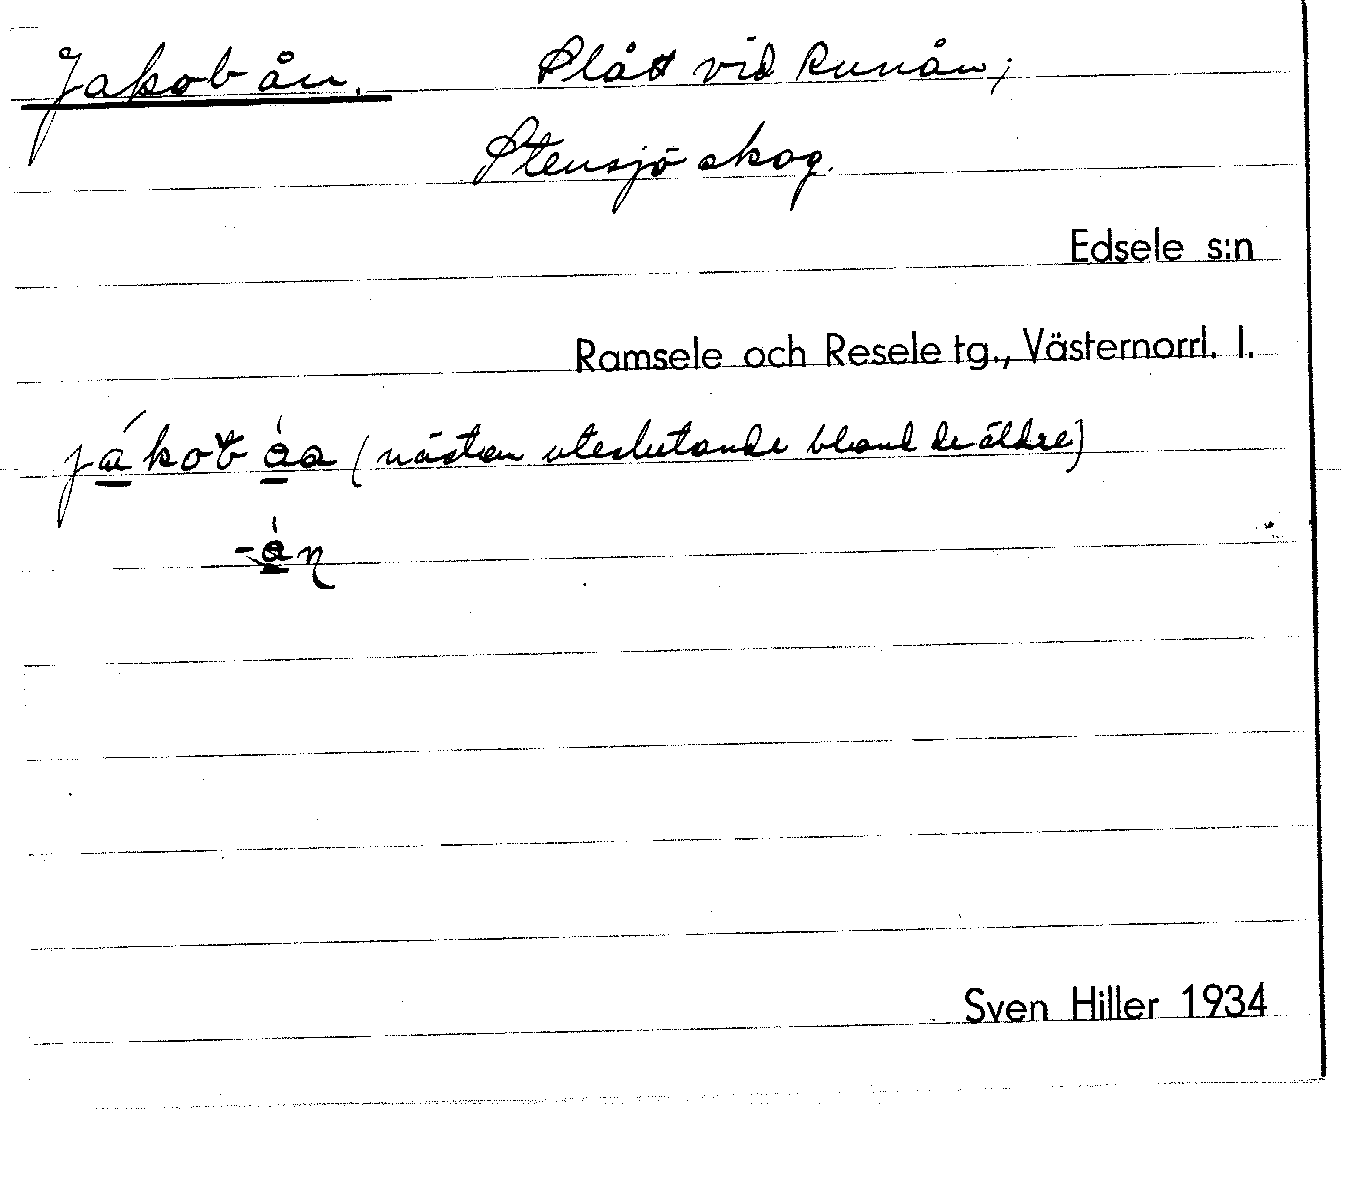 Jakob ån. Slått vid Runån;
Stensjö skog.
Edsele s:n
Ramsele och Resele tg., Västernorrl. l.
jákob åa (nästan uteslutande bland de äldre)
-ån
Sven Hiller 1934